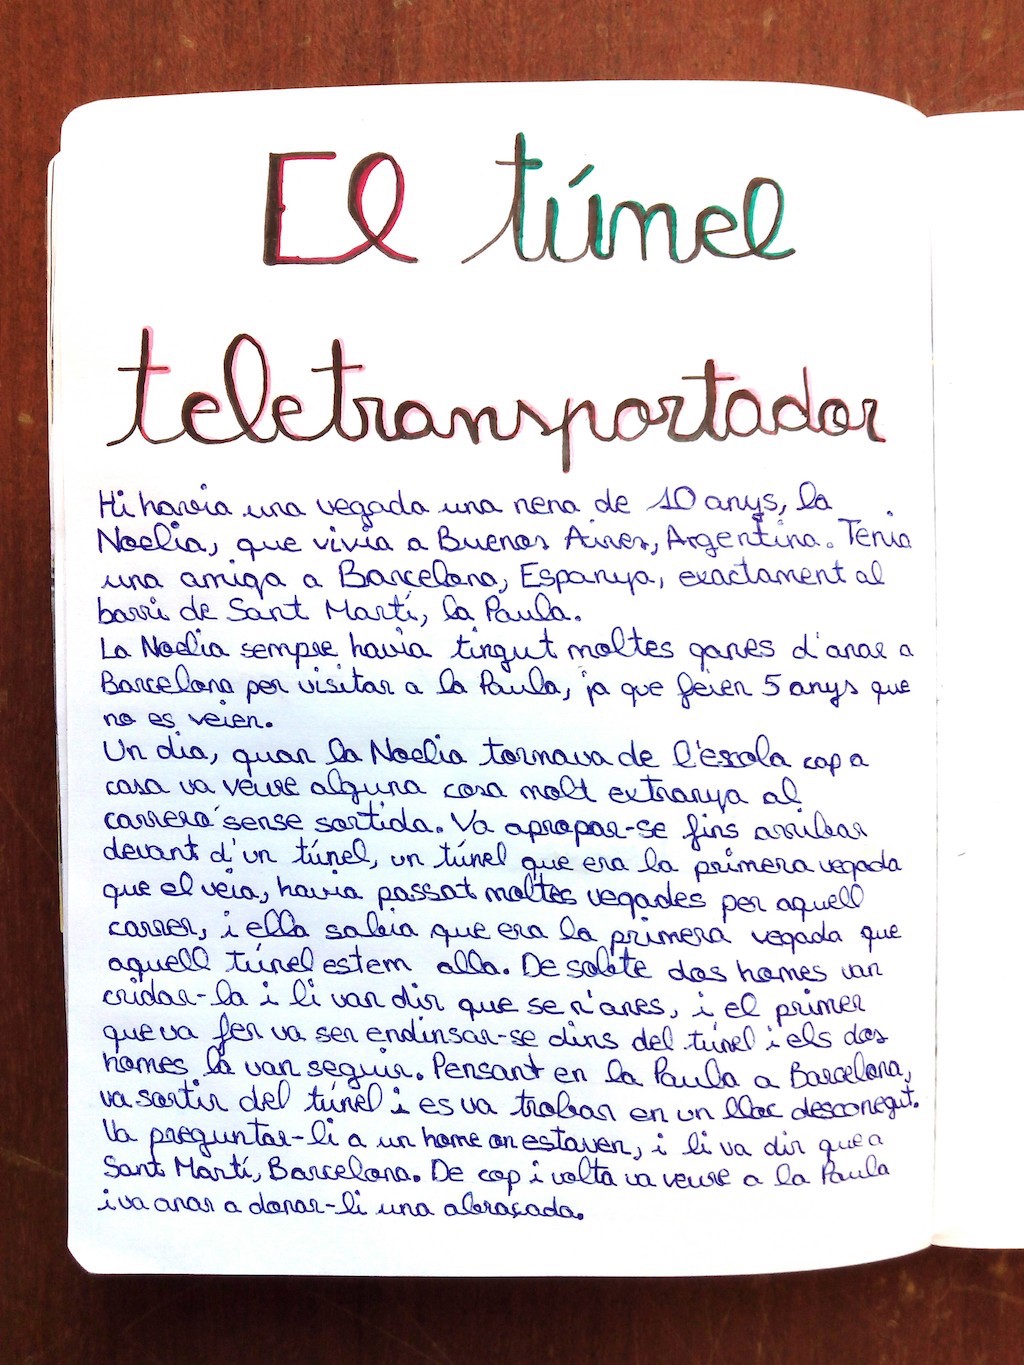 El túnel
teletransportador
Hi havia una vegada una nena de 10 anys, la
Noelia, que vivia a Buenos Aires, Argentina. Tenia
una amiga a Barcelona, Espanya, exactament al
barri de Sant Martí, la Paula.
La Noelia sempre havia tingut moltes ganes d'anar a
Barcelona per visitar a la Paula, ja que feien 5 anys que
no es veien.
Un dia, quan la Noelia tornava de l'escola cap a
casa va veure alguna cosa molt extranya al
carrero sense sortida. Va apropar-se fins arribar
devant d'un túnel, un túnel que era la primera vegada
que el veia, havia passat moltes vegades per aquell
carrer, i ella sabia que era la primera vegada que
aquell túnel estem alla. De sobte dos homes van
cridar-la i li van dir que se n'anes, i el primer
que va fer va ser endinsar-se dins del túnel i els dos
homes la van seguir. Pensant en la Paula a Barcelona,
va sortir del túnel i es va trobar en un lloc desconegut.
Va preguntar-li a un home on estaven, i li va dir que a
Sant Martí, Barcelona. De cop i volta va veure a la Paula
i va anar a donar-li una abraçada.